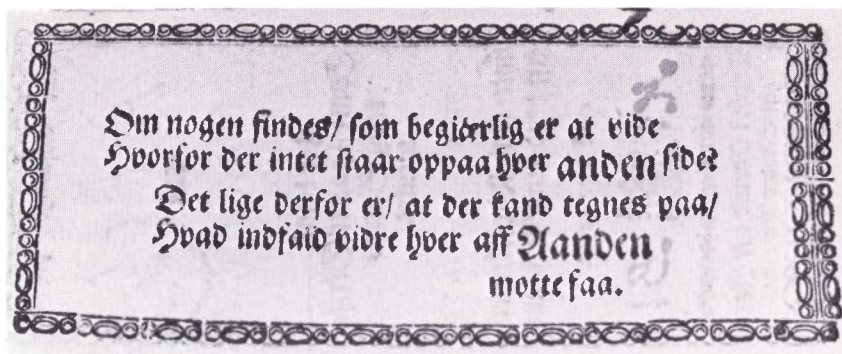 Om nogen findes/ som begiærlig er at vide
Hvorfor der intet staar oppaa hver anden side?
Det lige derfor er/ at der kand tegnes paa/
Hvad indfald vidre hver aff Aanden
motte faa.